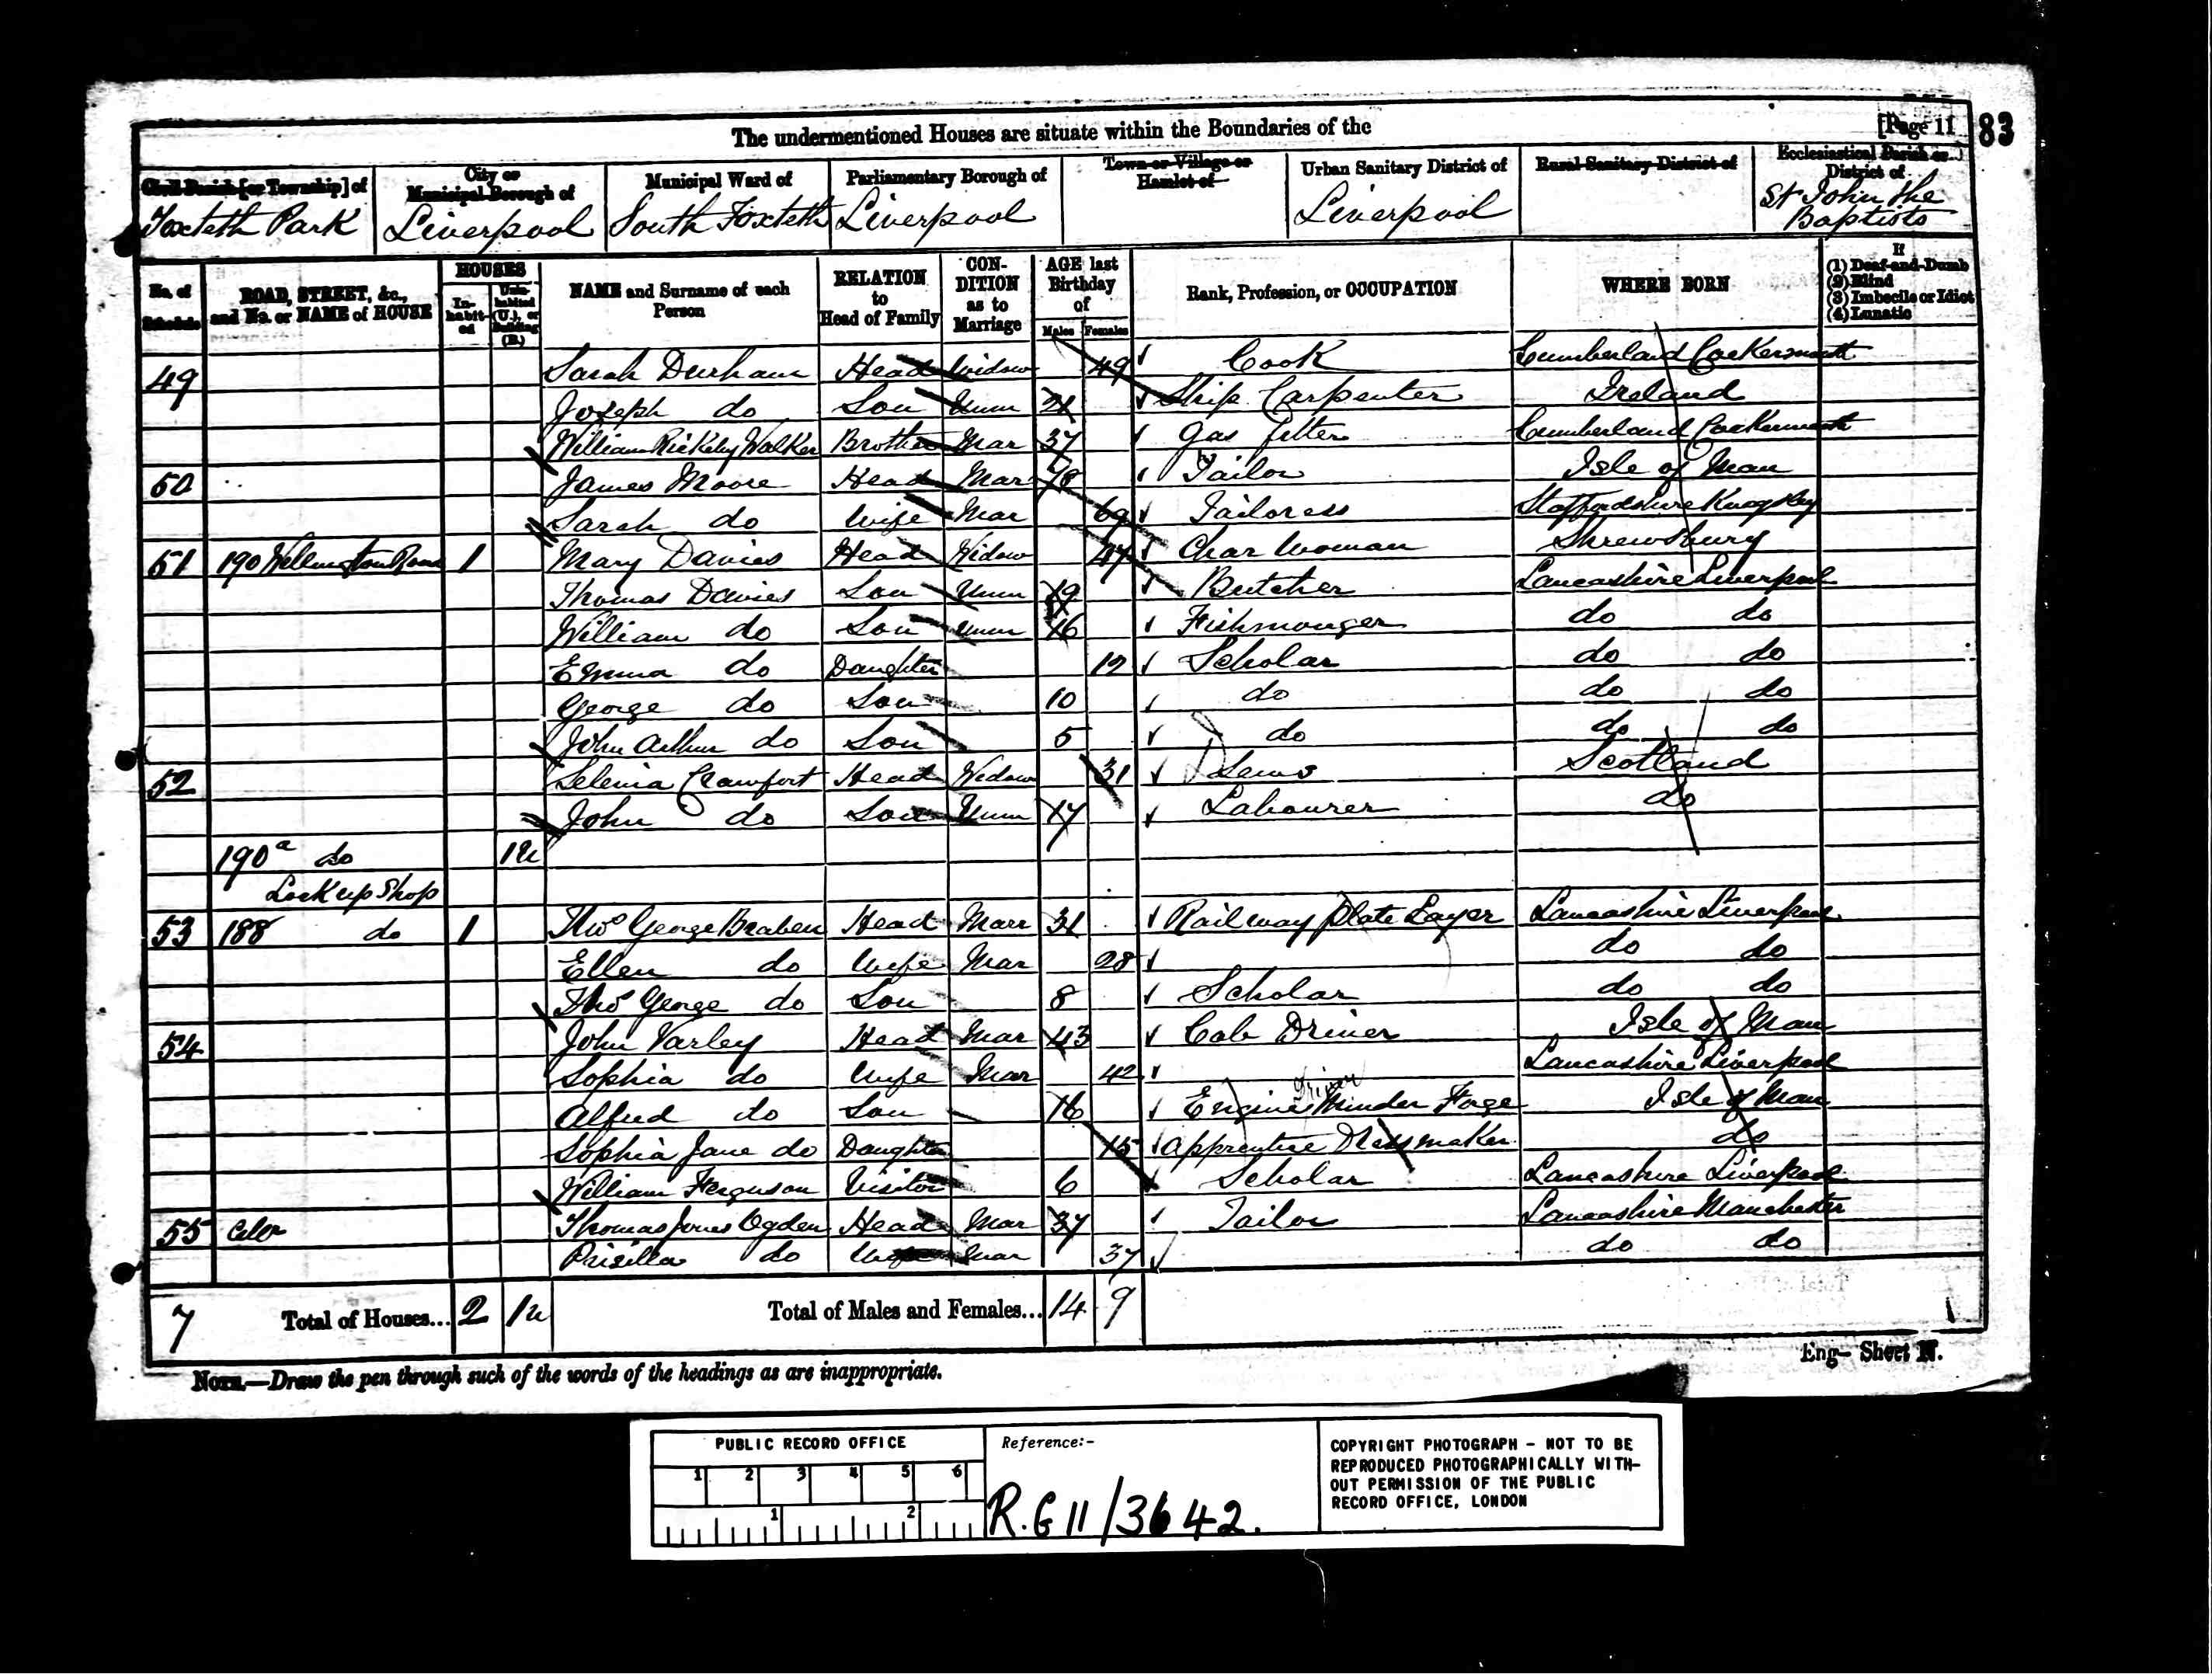 The undermentioned Houses are situate within the Boundaries of the
[Page 11
83
Civil Parish [or Township] of
City or Municipal Borough of
Municipal Ward of
Parliamentary Borough of
Town or Village or Hamlet of
Urban Sanitary District of
Rural Sanitary District of
Ecclesiastical Parish or District of
Toxteth Park
Liverpool
South Toxteth
Liverpool
Liverpool
St John the Baptists
No. of Schedule
ROAD, STREET, &c., and No. or NAME of HOUSE
HOUSES
In-habit-ed
Unin-habited (U.), or Building (B.)
NAME and Surname of each Person
RELATION to Head of Family
CON-DITION as to Marriage
AGE last Birthday of
Males
Females
Rank, Profession, or OCCUPATION
WHERE BORN
If
(1) Deaf-and-Dumb
(2) Blind
(3) Imbecile or Idiot
(4) Lunatic
49 Sarah Durham Head Widow 49 Cook Cumberland Cockermouth
Joseph do Son Unm 21 Ship Carpenter Ireland
William Rickeby Walker Brother Mar 37 Gas fitter Cumberland Cockermouth
50 James Moore Head Mar 78 Tailor Isle of Man
Sarah do Wife Mar 69 Tailoress Staffordshire
51 190 Wellington Road 1 Mary Davies Head Widow 47 Char Woman Shrewsbury
Thomas Davies Son Unm 19 Butcher Lancashire Liverpool
William do Son Unm 16 Fishmonger do do
Emma do Daughter 12 Scholar do do
George do Son 10 do do do
John Arthur do Son 5 do do do
52 Selenia Crawfort Head Widow 31 Sews Scotland
John do Son Unm 17 Labourer do
190a do 1u
Lock up Shop
53 188 do 1 Thos George Braben Head Marr 31 Railway Plate Layer Lancashire Liverpool
Ellen do Wife Mar 28 do do
Thos George do Son 8 Scholar do do
54 John Varley Head Mar 43 Cab Driver Isle of Man
Sophia do Wife Mar 42 Lancashire Liverpool
Driver
Alfred do Son 16 Engine Minder Forge Isle of Man
Sophia Jane do Daughter 15 Apprentice Dressmaker do
William Ferguson Visitor 6 Scholar Lancashire Liverpool
55 Thomas Jones Ogden Head Mar 37 Tailor Lancashire Manchester
Prisilla do Wife Mar 37 do do
7 Total of Houses... 2 1u Total of Males and Females... 14 9
NOTE.—Draw the pen through such of the words of the headings as are inappropriate.
Eng- Sheet N.
PUBLIC RECORD OFFICE
1 2 3 4 5 6
1 2
Reference:-
R.G 11/3642.
COPYRIGHT PHOTOGRAPH - NOT TO BE
REPRODUCED PHOTOGRAPHICALLY WITH-
OUT PERMISSION OF THE PUBLIC
RECORD OFFICE, LONDON